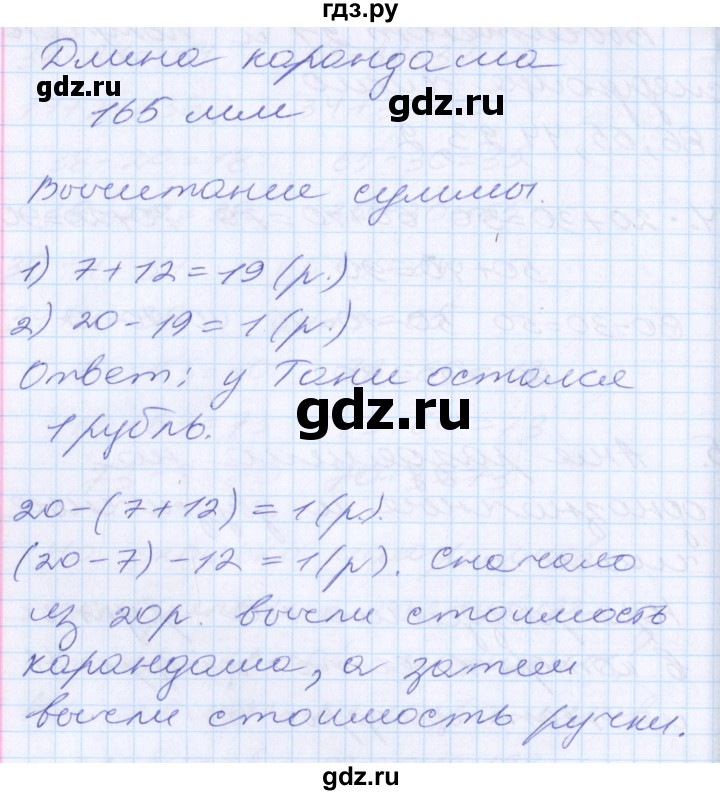 гдз.ру
Длина карандама
gdz.ru
gdz.ru
165 мм
Вычитание суммы.
1) 7+12=19 (р.)
2) 20-19=1 (р.)
Ответ: у Тани остался
gdz.ru
1 рубль.
20-(7+12)=1(р.).
(20-7)-12=1(р). Сначало
из 20р. вычли стоимость
карандаша, а затем
вычли стоимость ручки.
gdz.ru
gdz.ru
gdz.ru